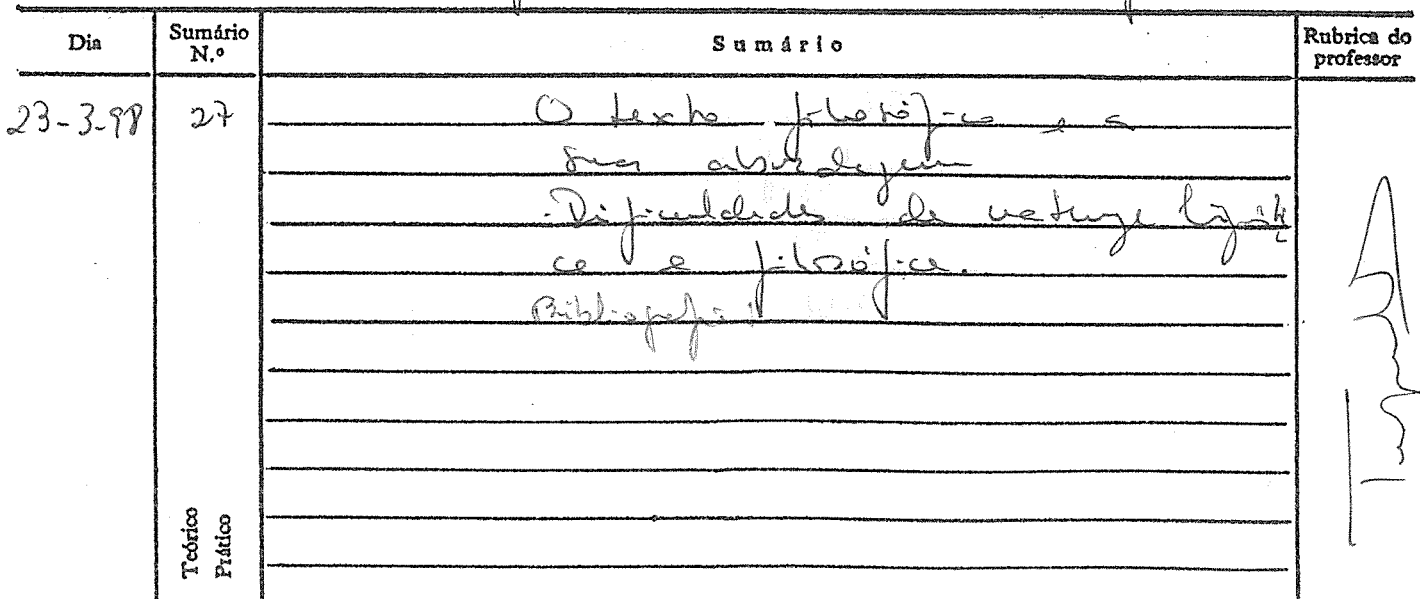 Dia Sumário N.º Sumário Rubrica do professor
23-3-98 27 O texto filosófico e a
sua abordagem
- Dificuldades de natureza linguísti
ca e filosófica.
Bibliografia:
Teórico
Prático